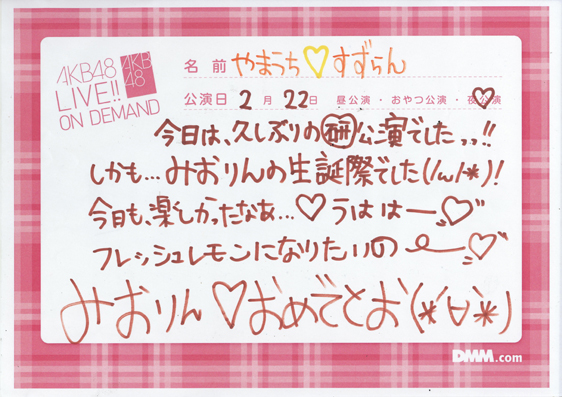 AKB48
LIVE!!
ON DEMAND
AKB
48
名前 やまうち♡すずらん
公演日 2月 22日 昼公演・おやつ公演・夜公演
今日は、久しぶりの研公演でしたっっ!!
しかも…みおりんの生誕際でした(/ω/*)!
今日も、楽しかったなあ…♡うははー♡
フレッシュレモンになりたいの♡
みおりん♡おめでとお(*´∀`*)
DMM.com